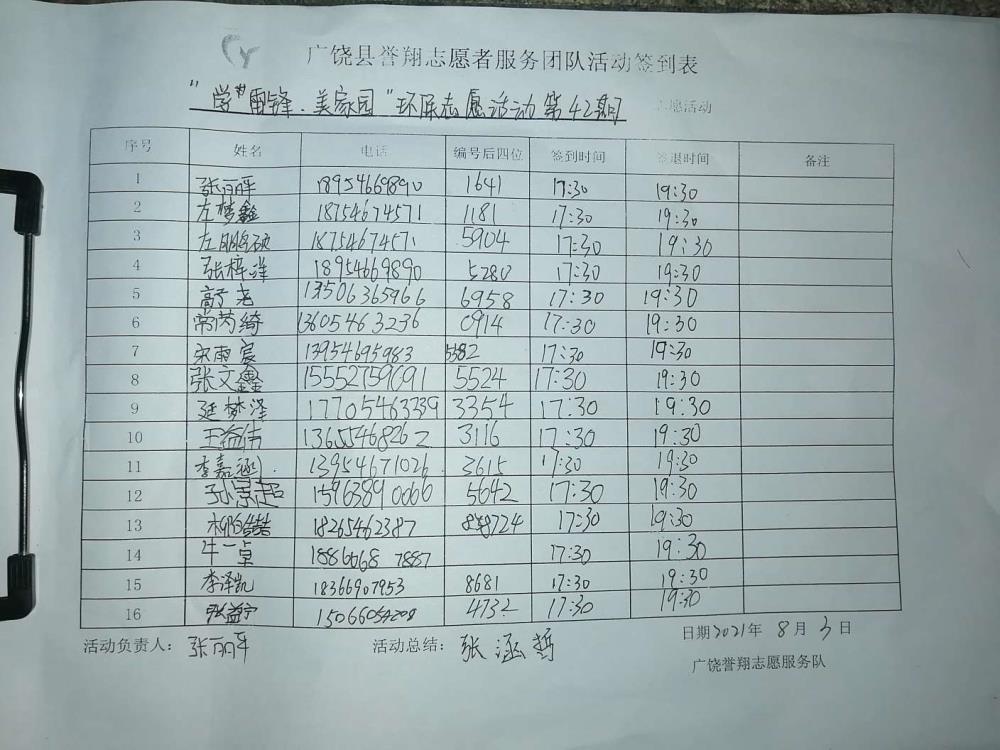 广饶县誉翔志愿者服务团队活动签到表
"学雷锋·美家园"环保志愿活动第42期 志愿活动
序号 姓名 电话 编号后四位 签到时间 签退时间 备注
1 张丽萍 18954669890 1641 17:30 19:30
2 左梦鑫 18754674571 1181 17:30 19:30
3 左鹏硕 18754674571 5904 17:30 19:30
4 张梓洋 18954669890 5280 17:30 19:30
5 高尧 13506365966 6958 17:30 19:30
6 常芮绮 13605463236 0914 17:30 19:30
7 宋雨宸 13954695983 17:30 19:30
8 张文鑫 15552759691 5524 17:30 19:30
9 延梦泽 17705463339 3354 17:30 19:30
10 王益伟 13655468262 3116 17:30 19:30
11 李嘉涵 13954671026 3615 17:30 19:30
12 孙景超 15963890066 5642 17:30 19:30
13 18265462387 17:30 19:30
14 牛一卓 17:30 19:30
15 李泽凯 18366907953 8681 17:30 19:30
16 张益宁 4732 17:30 19:30
活动负责人: 张丽萍 活动总结: 张涵哲 日期2021年 8月 3日
广饶誉翔志愿服务队